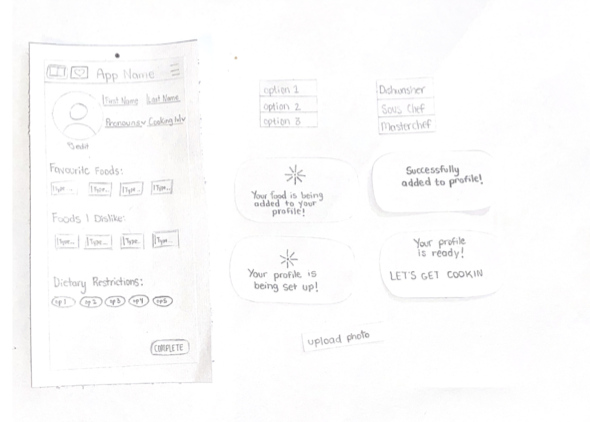 App Name
First Name Last Name
Pronouns Cooking lvl
edit
Favourite Foods:
Type... Type... Type... Type...
Foods I Dislike:
Type... Type... Type... Type...
Dietary Restrictions:
op 1 op 2 op 3 op 4 op 5
COMPLETE
option 1
option 2
option 3
Dishwasher
Sous Chef
Masterchef
Your food is being
added to your
profile!
Successfully
added to profile!
Your profile is
being set up!
Your profile
is ready!
LET'S GET COOKIN
upload photo